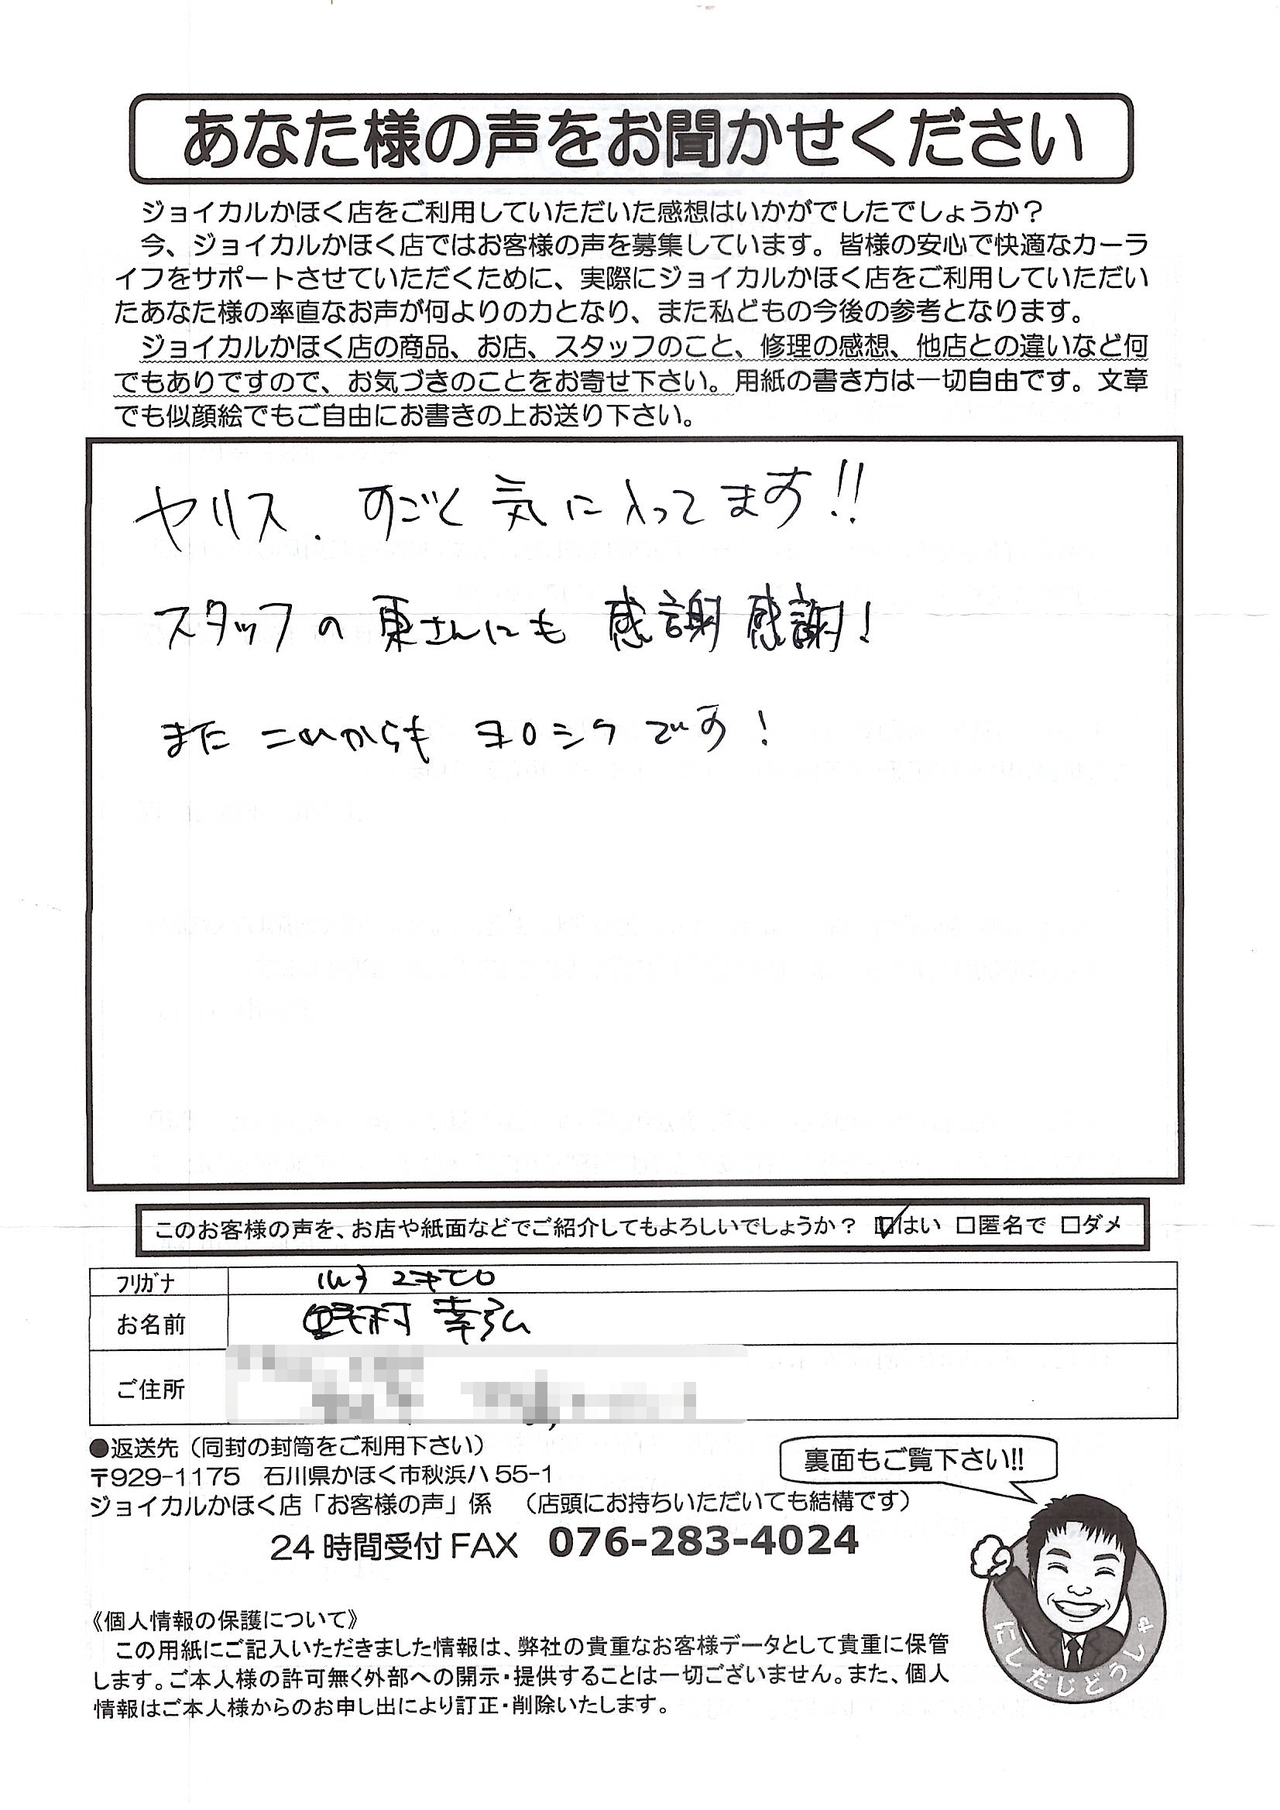 あなた様の声をお聞かせください
ジョイカルかほく店をご利用していただいた感想はいかがでしたでしょうか？
今、ジョイカルかほく店ではお客様の声を募集しています。皆様の安心で快適なカーラ
イフをサポートさせていただくために、実際にジョイカルかほく店をご利用していただい
たあなた様の率直なお声が何よりの力となり、また私どもの今後の参考となります。
ジョイカルかほく店の商品、お店、スタッフのこと、修理の感想、他店との違いなど何
でもありですので、お気づきのことをお寄せ下さい。用紙の書き方は一切自由です。文章
でも似顔絵でもご自由にお書きの上お送り下さい。
ヤリス．すごく気に入ってます!!
スタッフの東さんにも感謝感謝！
またこれからもヨロシクです！
このお客様の声を、お店や紙面などでご紹介してもよろしいでしょうか？ ☑はい □匿名で □ダメ
フリガナ
お名前 野村 幸弘
ご住所
●返送先（同封の封筒をご利用下さい）
〒929-1175 石川県かほく市秋浜ハ55-1
ジョイカルかほく店「お客様の声」係 （店頭にお持ちいただいても結構です）
裏面もご覧下さい!!
24時間受付FAX 076-283-4024
にしだじどうしゃ
《個人情報の保護について》
この用紙にご記入いただきました情報は、弊社の貴重なお客様データとして貴重に保管
します。ご本人様の許可無く外部への開示・提供することは一切ございません。また、個人
情報はご本人様からのお申し出により訂正・削除いたします。